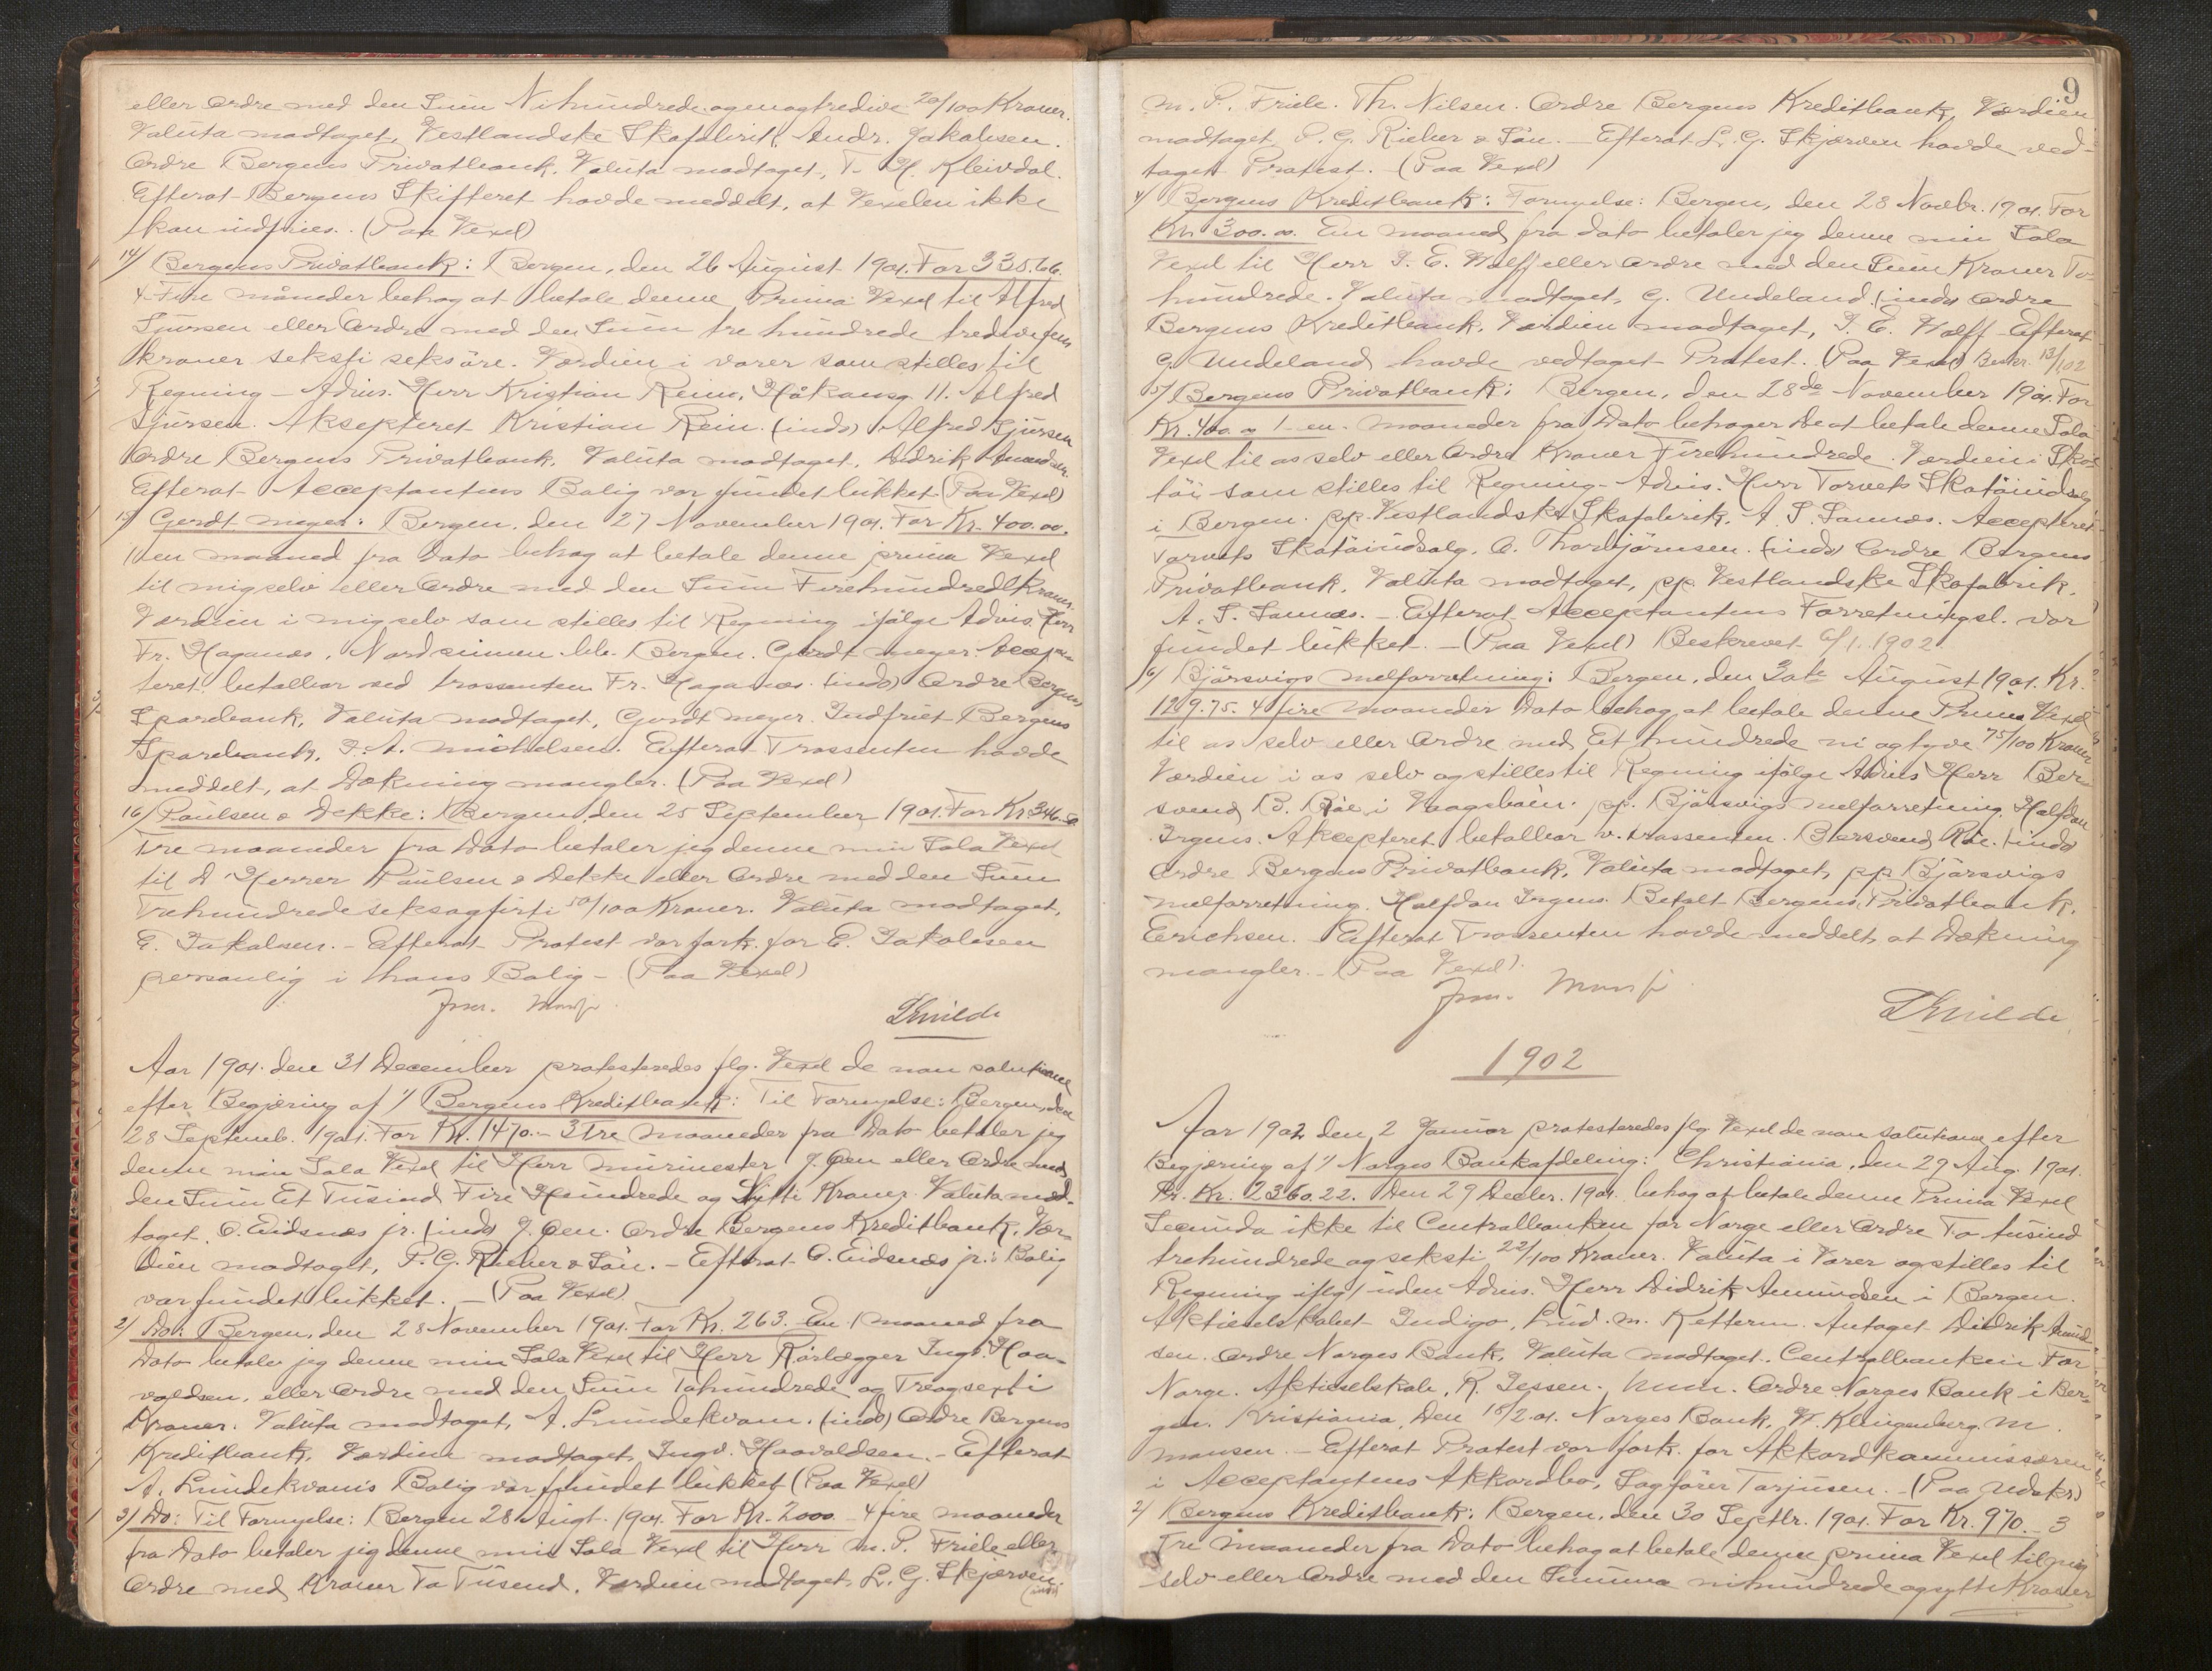 eller Ordre med den Sum Nihundrede og enogtredive 20/100 Kroner.
Valuta modtaget, Vestlandske Skofabrik, Andr. Jakobsen.
Ordre Bergens Privatbank. Valuta modtaget, T. H. Kleivdal.
Efterat Bergens Skifteret havde meddelt, at Vexelen ikke
kan indfries. (Paa Vexel)
14/ Bergens Privatbank: Bergen, den 26 August 1901. For 335.66.
4 Fire måneder behag at betale denne Prima Vexel til Alfred
Sjursen eller Ordre med den Sum tre hundrede tredivefem
kroner seksti seks öre. Værdien i varer som stilles til
Regning - Advis. Herr Kristian Rein, Håkonsg. 11. Alfred
Sjursen. Aksepteret Kristian Rein. (indo) Alfred Sjursen
Ordre Bergens Privatbank. Valuta modtaget. Didrik Amundsen.
Efterat Acceptantens Bolig var fundet lukket (Paa Vexel)
15/ Gerdt Meyer: Bergen, den 27 November 1901. For Kr. 400.00.
1 en maaned fra Dato behag at betale denne prima Vexel
til mig selv eller Ordre med den Sum Firehundred Kroner.
Værdien i mig selv som stilles til Regning ifølge Advis. Herr
Fr. Haganæs, Bergen. Gerdt Meyer. Accep-
teret betalbar ved trassenten Fr. Haganæs. (indo) Ordre Bergens
Sparebank, Valuta modtaget, Gerdt Meyer. Indfriet Bergens
Sparebank, J. A. Michelsen. Efterat Trassenten havde
meddelt, at Dækning mangler. (Paa Vexel)
16/ Paulsen & Dekke: Bergen, den 25 September 1901. For Kr 346.50
Tre maaneder fra Dato betaler jeg denne min Sola Vexel
til D'Herrer Paulsen & Dekke eller Ordre med den Sum
Trehundredeseksogfirti 50/100 Kroner. Valuta modtaget,
E. Jakobsen. - Efterat Protest var fork. for E. Jakobsen
personlig i hans Bolig - (Paa Vexel)
Aar 1901. den 31 December protesteredes flg. Vexel de non solutione
efter Begjæring af 1/ Bergens Kreditbank: Til Fornyelse: Bergen, den
28 Septemb. 1901. For Kr. 1470.- 3 Tre maaneder fra Dato betaler jeg
denne min Sola Vexel til Herr Murmester J. Oen eller Ordre med
den Sum Et Tusind Fire Hundrede og Sytti Kroner. Valuta mod-
taget. O. Eidsnæs jr. (indo) J. Oen. Ordre Bergens Kreditbank, Vær-
dien modtaget, P. G. Rieber & Sön. - Efterat O. Eidsnæs jr.s Bolig
var fundet lukket. - (Paa Vexel)
2/ Do: Bergen, den 28 November 1901. For Kr. 263. En 1 maaned fra
Dato betaler jeg denne min Sola Vexel til Herr Rörlægger Ingv. Haa-
valdsen, eller Ordre med den Sum Tohundrede og Treogsexti
Kroner. Valuta modtaget, A. Lundekvam. (indo) Ordre Bergens
Kreditbank, Værdien modtaget, Ingv. Haavaldsen. - Efterat
A. Lundekvam's Bolig var fundet lukket (Paa Vexel)
3/ Do: Til Fornyelse: Bergen 28 Augt. 1901. For Kr. 2000 - 4 fire maaneder
fra Dato betaler jeg denne min Sola Vexel til Herr M. P. Friele eller
Ordre med Kroner To Tusend. Værdien modtaget. L. G. Skjærven. (indo)
9
M. P. Friele. Th. Nilsen. Ordre Bergens Kreditbank, Værdien
modtaget, P. G. Rieber & Sön. - Efterat L. G. Skjærven havde ved-
taget Protest. - (Paa Vexel)
4/ Bergens Kreditbank: Fornyelse: Bergen, den 28 Novbr. 1901. For
Kr. 300.00. En maaned fra dato betaler jeg denne min Sola
Vexel til Herr J. E. Wolff eller Ordre med den Sum Kroner To-
hundrede. Valuta modtaget, G. Undeland. (indo) Ordre
Bergens Kreditbank. Værdien modtaget, J. E. Wolff - Efterat
G. Undeland havde vedtaget Protest. (Paa Vexel) Beskr. 13/1 02
5/ Bergens Privatbank: Bergen, den 28de November 1901. For
Kr. 400.00 1 en maaneder fra Dato behager De at betale denne Sola
Vexel til os selv eller Ordre Kroner Firehundrede. Værdien i Sko-
töi som stilles til Regning - Advis. Herr Torvets Skotöiudsalg
i Bergen. pp. Vestlandske Skofabrik. A. S. Sannæs. Accepteret
Torvets Skotöiudsalg. O. Thorbjörnsen. (indo) Ordre Bergens
Privatbank, Valuta modtaget, pp. Vestlandske Skofabrik.
A. S. Sannæs. - Efterat Acceptantens Forretningsl. var
fundet lukket. - (Paa Vexel) Beskrevet 6/1. 1902.
6/ Björsvigs Melforretning: Bergen, den 30te August 1901. Kr.
129.75. 4 fire maaneder Dato behag at betale denne Prima Vexel
til os selv eller Ordre med Et hundrede ni og tyve 75/100 Kroner
Værdien i os selv og stilles til Regning ifölge Advis Herr Ber-
svend B. Röe i Vaagsbøen. pp. Björsvigs Melforretning. Halfdan
Irgens. Akcepteret betalbar v. trassenten. Bersvend Röe. (indo)
Ordre Bergens Privatbank, Valuta modtaget, pp Björsvigs
Melforretning. Halfdan Irgens. Betalt Bergens Privatbank.
Erichsen. - Efterat Trassenten havde meddelt, at Dækning
mangler. - (Paa Vexel).
1902
Aar 1902 den 2 Januar protesteredes flg. Vexel de non solutione efter
Begjæring af 1/ Norges Bankafdeling: Christiania, den 29 Aug. 1901.
Kr. 2360.22. Den 29 Decbr. 1901 behag at betale denne Prima Vexel
Secunda ikke til Centralbanken for Norge eller Ordre To tusind
trehundrede og seksti 22/100 Kroner. Valuta i Varer og stilles til
Regning iflg. uden Advis. Herr Didrik Amundsen i Bergen.
Aktieselskabet Indigo, Lud. M. Antaget Didrik Amund-
sen. Ordre Norges Bank, Valuta modtaget. Centralbanken For
Norge. Aktieselskab, R. Jessen. Ordre Norges Bank i Ber-
gen. Kristiania, den Norges Bank, K. Klingenberg. M.
Monsen. - Efterat Protest var fork. for Akkordkommissæren
i Acceptantens Akkordbo, Sagförer Torjusen. - (Paa Udskr.)
2/ Bergens Kreditbank: Bergen, den 30 Septbr. 1901. For Kr. 970. - 3
Tre Maaneder fra Dato behag at betale denne prima Vexel til mig
selv eller Ordre med den Summa nihundrede og sytti Kroner